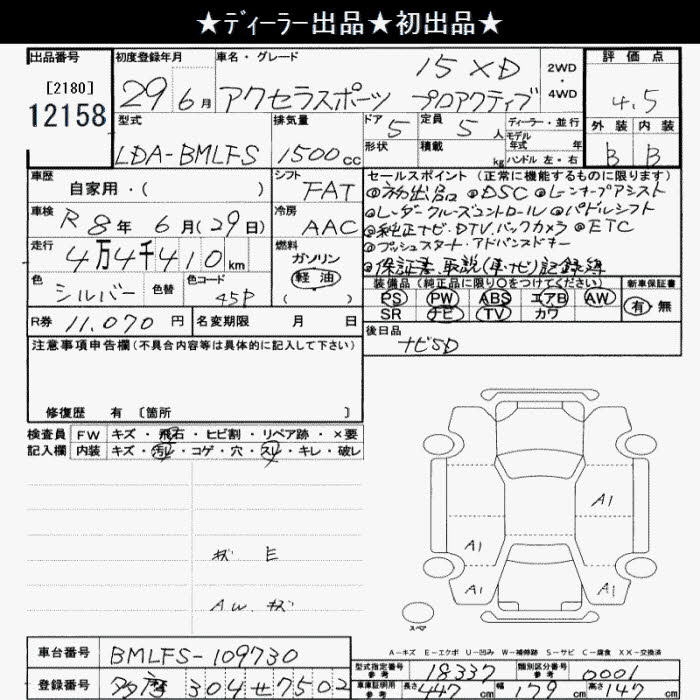 ★ディーラー出品★初出品★
出品番号
[2180]
12158
初度登録年月
29年 6月
車名・グレード
15XD
アクセラスポーツ プロアクティブ
2WD
・
4WD
評価点
4.5
外装 内装
B B
型式
LDA-BMLFS
排気量
1500cc
ドア 5
定員 5 人
形状
積載 kg
ディーラー・並行
モデル
年式 年
ハンドル 左・右
車歴
自家用・( )
シフト
FAT
車検
R 8年 6月(29日)
冷房
AAC
走行
4万4千410km
燃料
ガソリン
軽油
( )
色
シルバー
色替
色コード
45P
R券 11,070円
名変期限 月 日
セールスポイント (正常に機能するものに限ります)
◎初出品 ◎DSC ◎レーンキープアシスト
◎レーダークルーズコントロール ◎パドルシフト
◎純正ナビ・DTV.バックカメラ ◎ETC
◎プッシュスタート・アドバンスドキー
◎保証書.取説(車・ナビ)記録簿
装備品 (純正品に限り○をつけてください)
PS PW ABS エアB AW
SR ナビ TV カワ
新車保証書
有・無
後日品
ナビSD
注意事項申告欄 (不具合内容等は具体的に記入して下さい)
修復歴 有 〔箇所 〕
検査員
記入欄
FW キズ・飛石・ヒビ割・リペア跡・×要
内装 キズ・汚レ・コゲ・穴・スレ・キレ・破レ
キズ E
A.W. キズ
A1
A1
A1
A1
スペア
A－キズ E－エクボ U－凹み W－補修跡 S－サビ C－腐食 XX－交換済
車台番号
BMLFS-109730
登録番号
304せ7502
型式指定番号
参考
18337
類別区分番号
参考
0001
車庫証明用
参考
長さ 447cm 幅 179cm 高さ 147cm